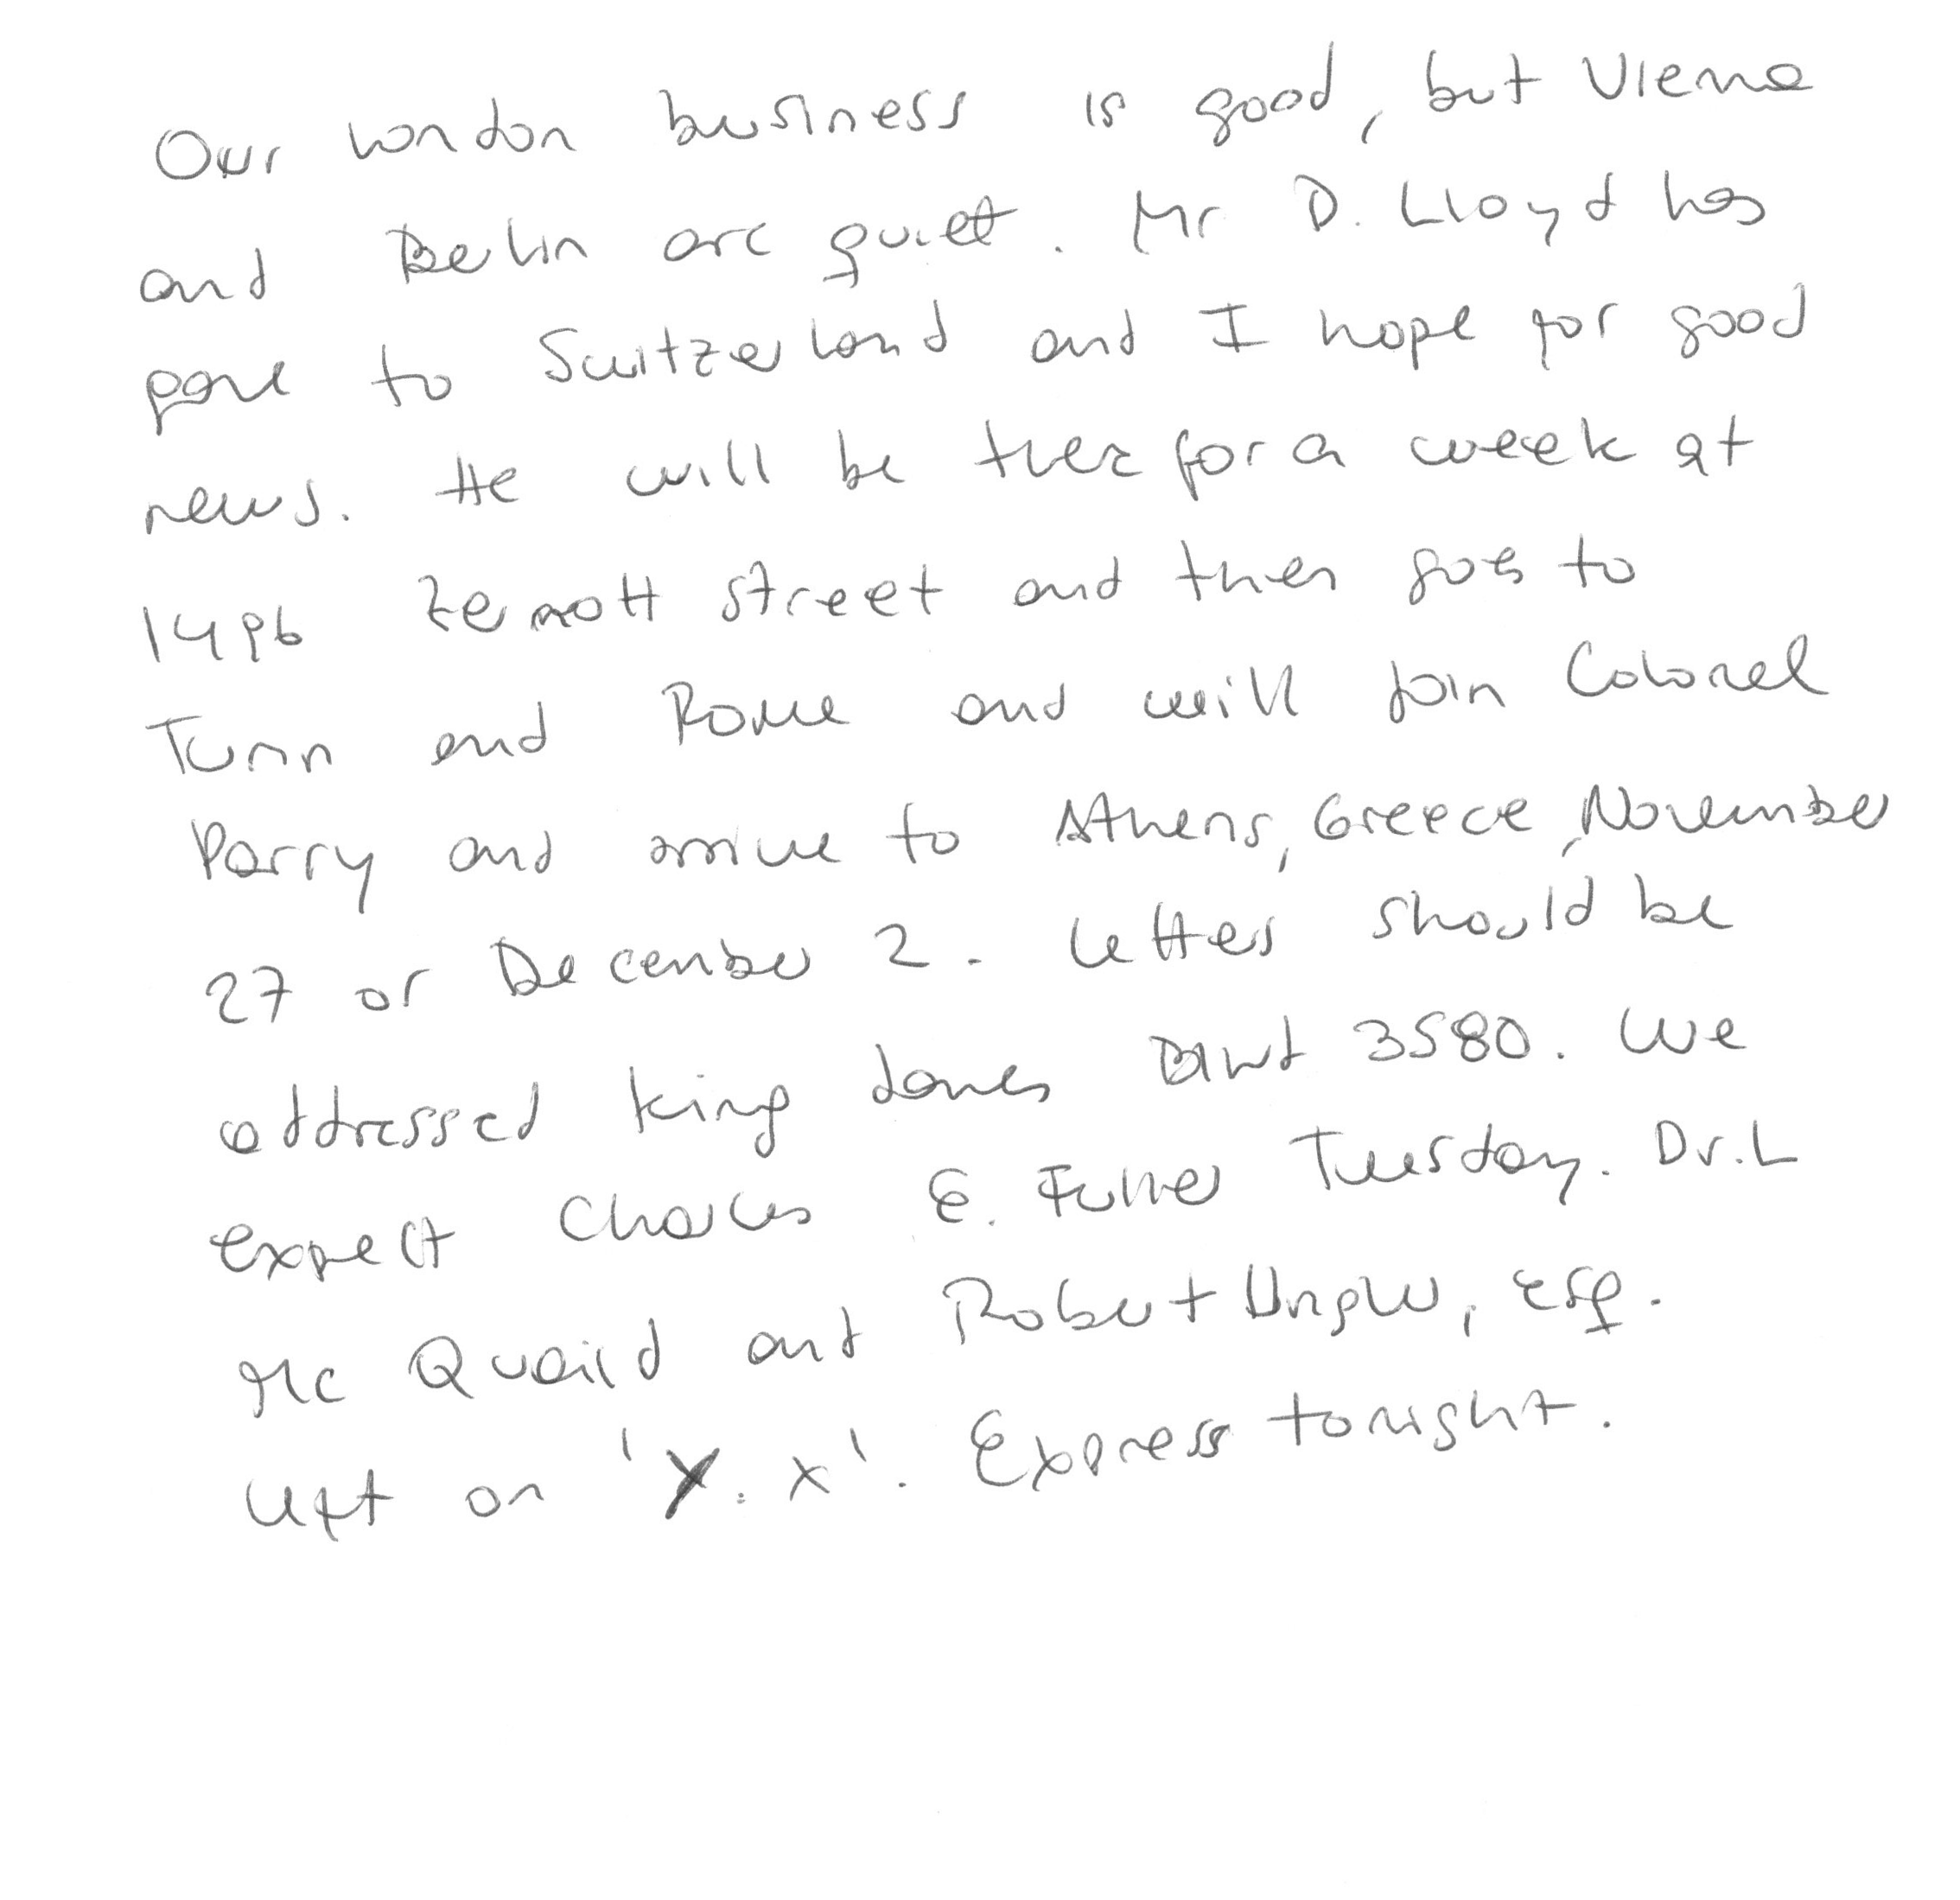 Our London business is good, but Viena
and Berlin are quiet. Mr. D. Lloyd has
gone to Switzerland and I hope for good
news. He will be there for a week at
1496 Zermott street and then goes to
Turin and Rome and will join Colonel
Parry and arrive to Athens, Greece, November
27 or December 2. Letters should be
addressed King James Blvd 3580. We
expect Charles E. Fuller Tuesday. Dr. L
Mc Quaid and Robert Unger, Esq.
left on 'Y. X'. Express tonight.